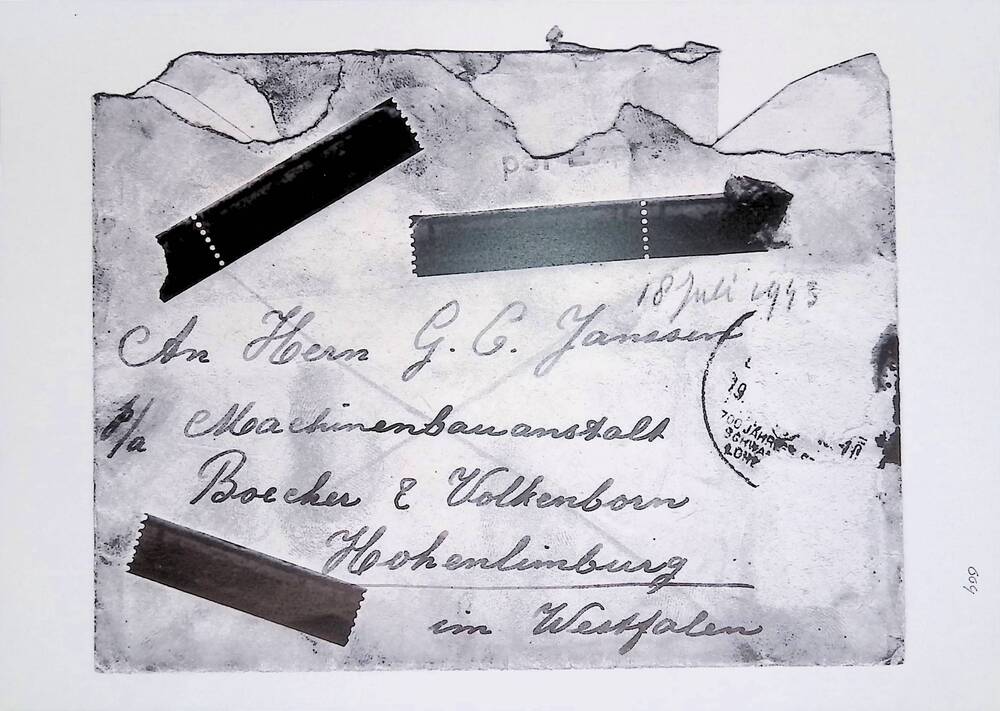 18 Juli 1943
An Hern G. C. Janssen
p/a Machinenbauanstalt
Boecher & Volkenborn
Hohenlimburg
im Westfalen
19.
700 JAHR
SCHWA
609